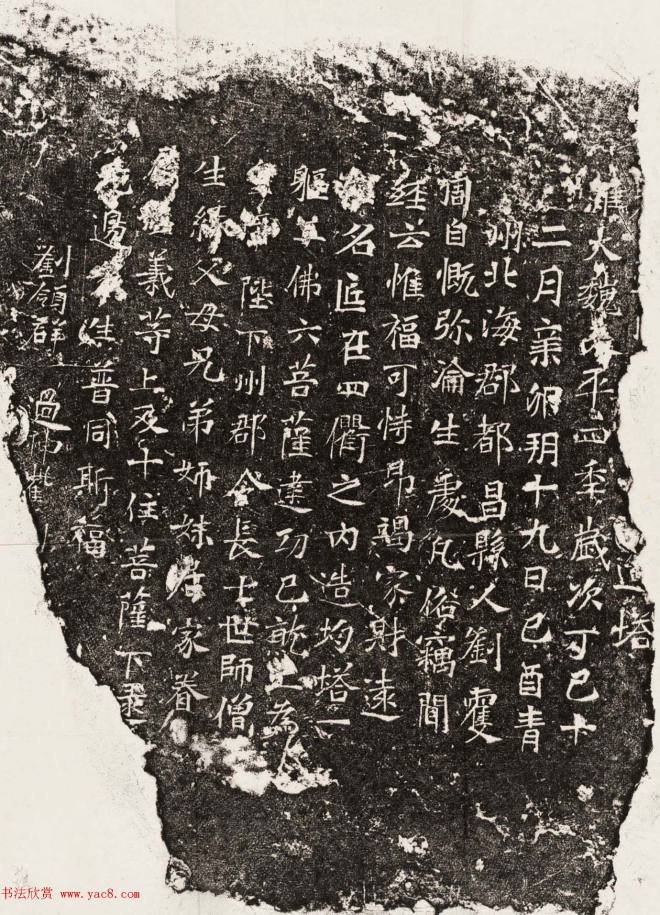 造塔
維大魏天平四季歲次丁巳十
二月辛卯朔十九日己酉青
州北海郡都昌縣人劉霍
周自慨弥淪生處凡俗竊聞
經云惟福可恃即竭家財遠
名匠在四衢之内造塼塔一
軀二佛六菩薩建功已就上為
陛下州郡令長七世師僧
生緣父母兄弟姊妹居家眷
義等上及十住菩薩下
邊生普同斯福
劉領群
书法欣赏 www.yac8.com